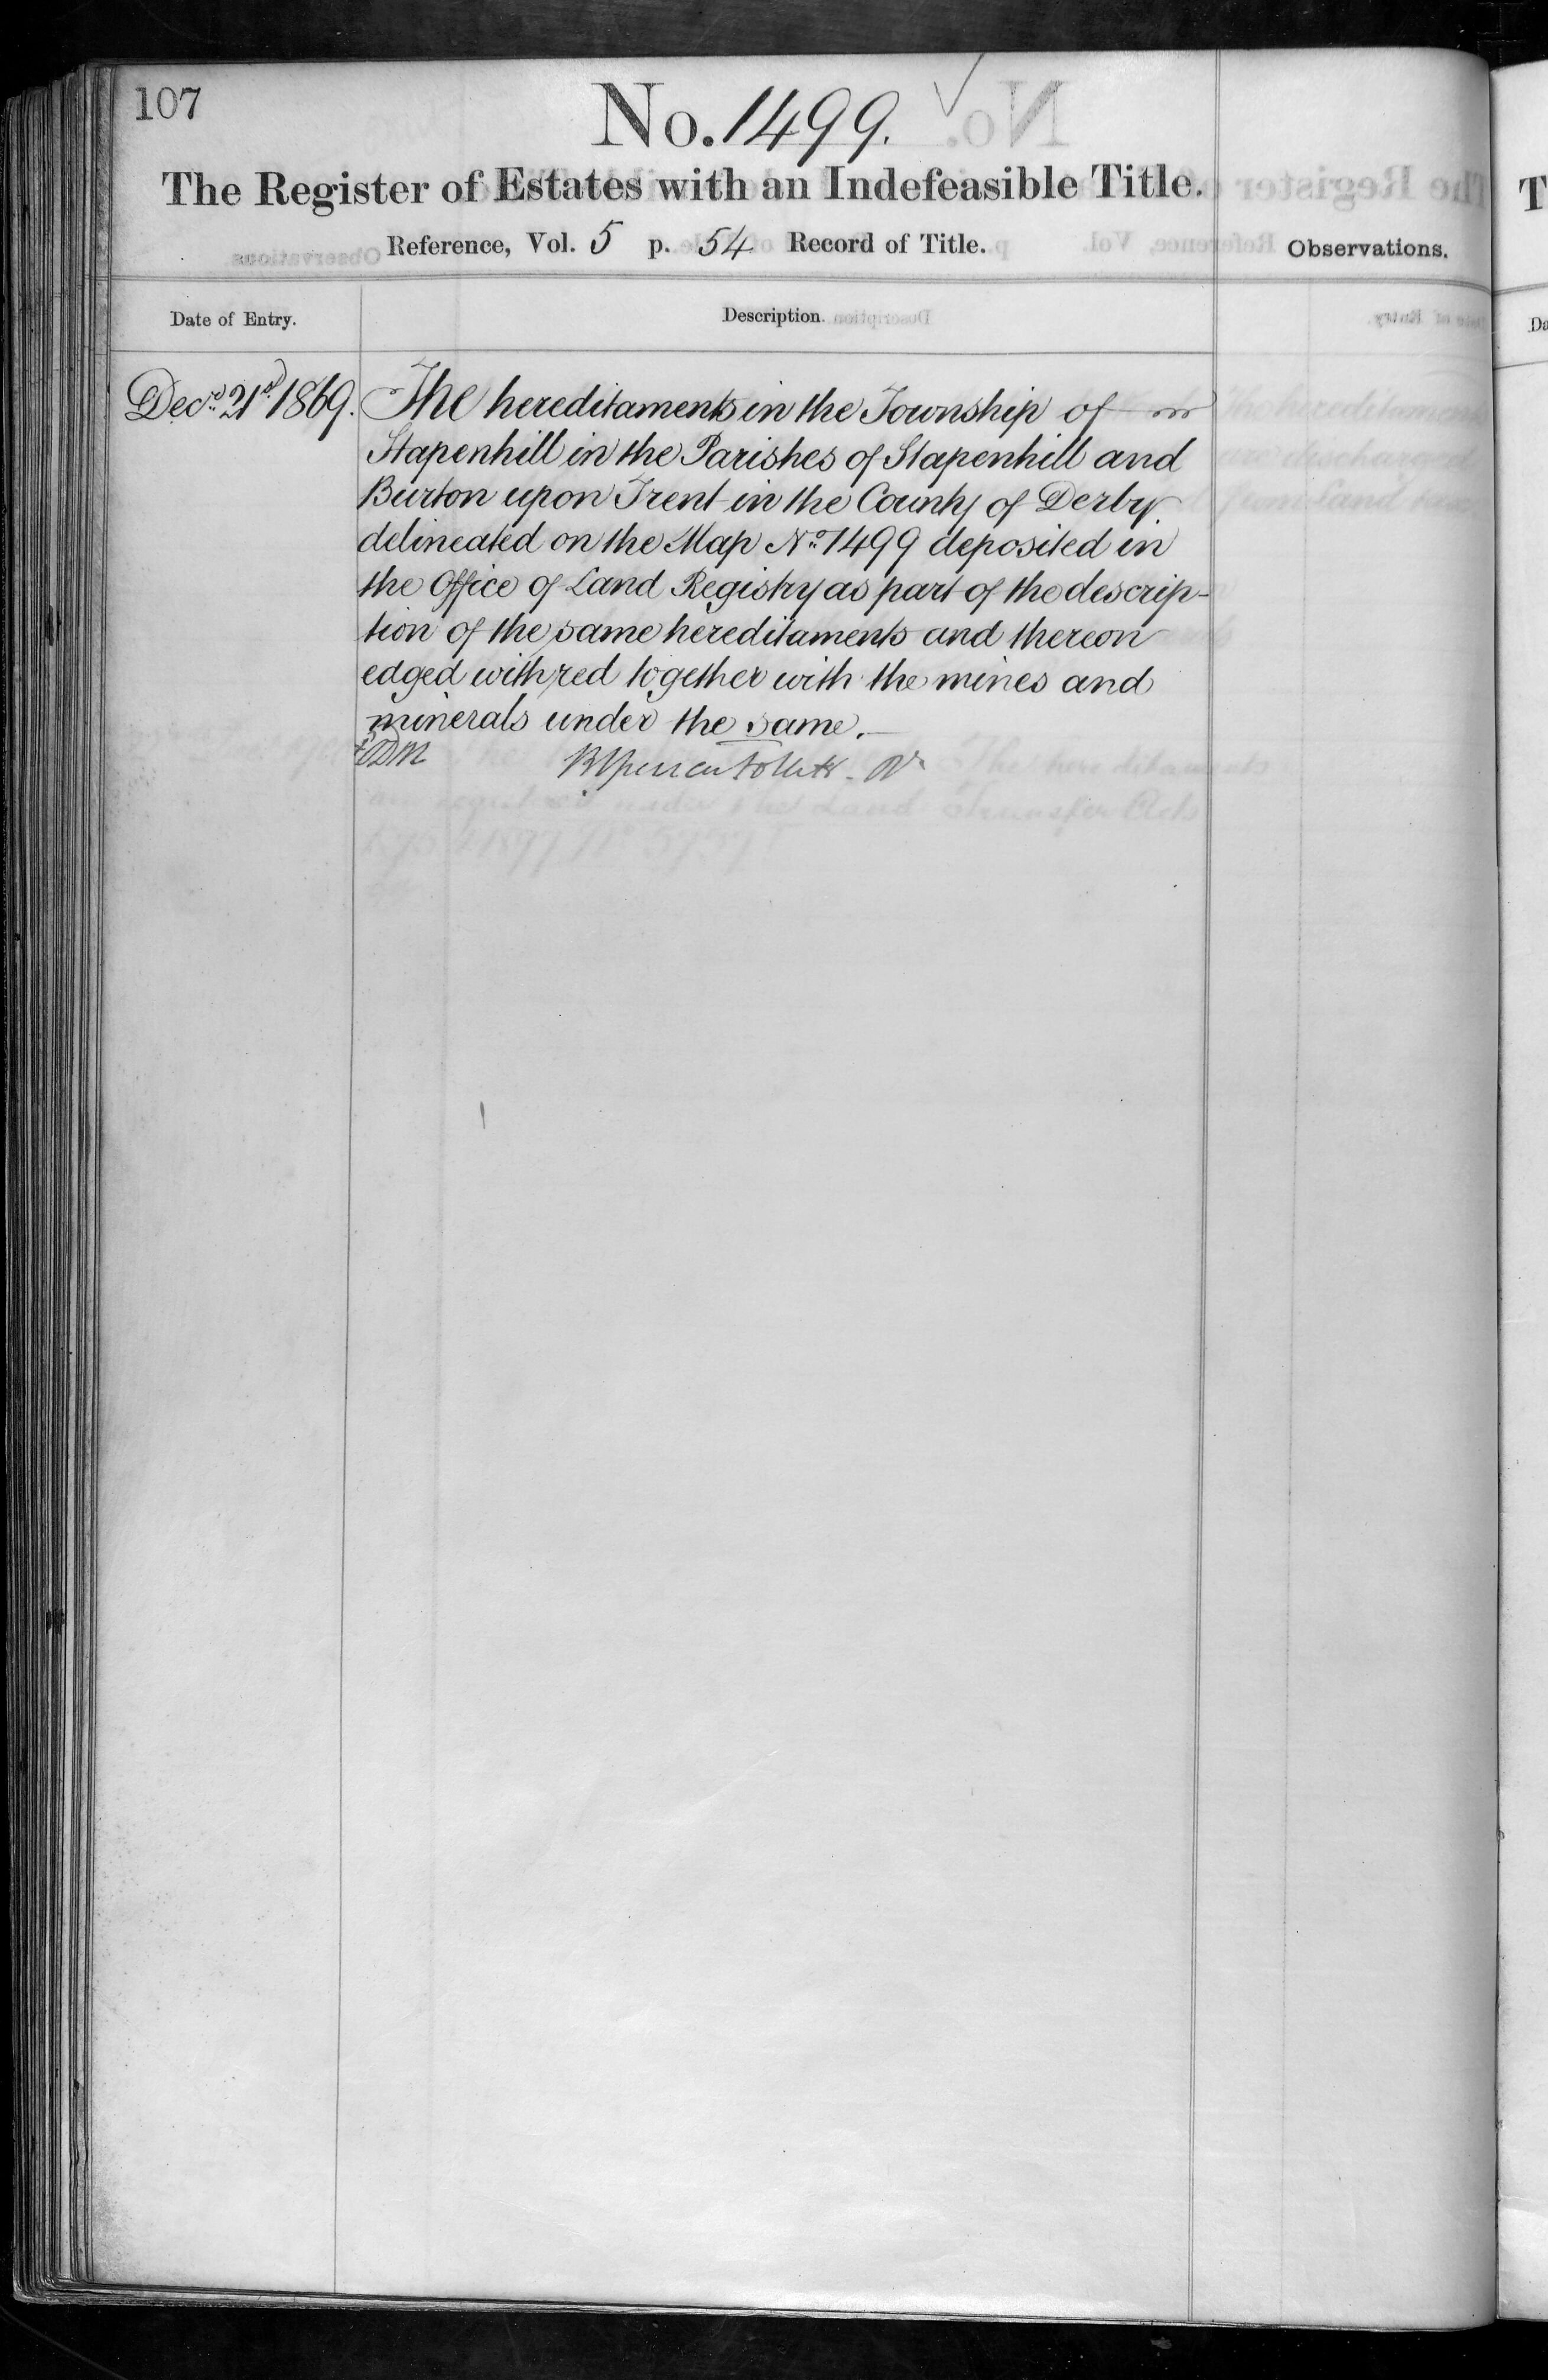 107
No. 1499.
The Register of Estates with an Indefeasible Title.
Reference, Vol. 5 p. 54 Record of Title.
Observations.
Date of Entry.
Description.
Decr. 21st 1869.
The hereditaments in the Township of
Stapenhill in the Parishes of Stapenhill and
Burton upon Trent in the County of Derby
delineated on the Map No. 1499 deposited in
the Office of Land Registry as part of the descrip-
tion of the same hereditaments and thereon
edged with red together with the mines and
minerals under the same.